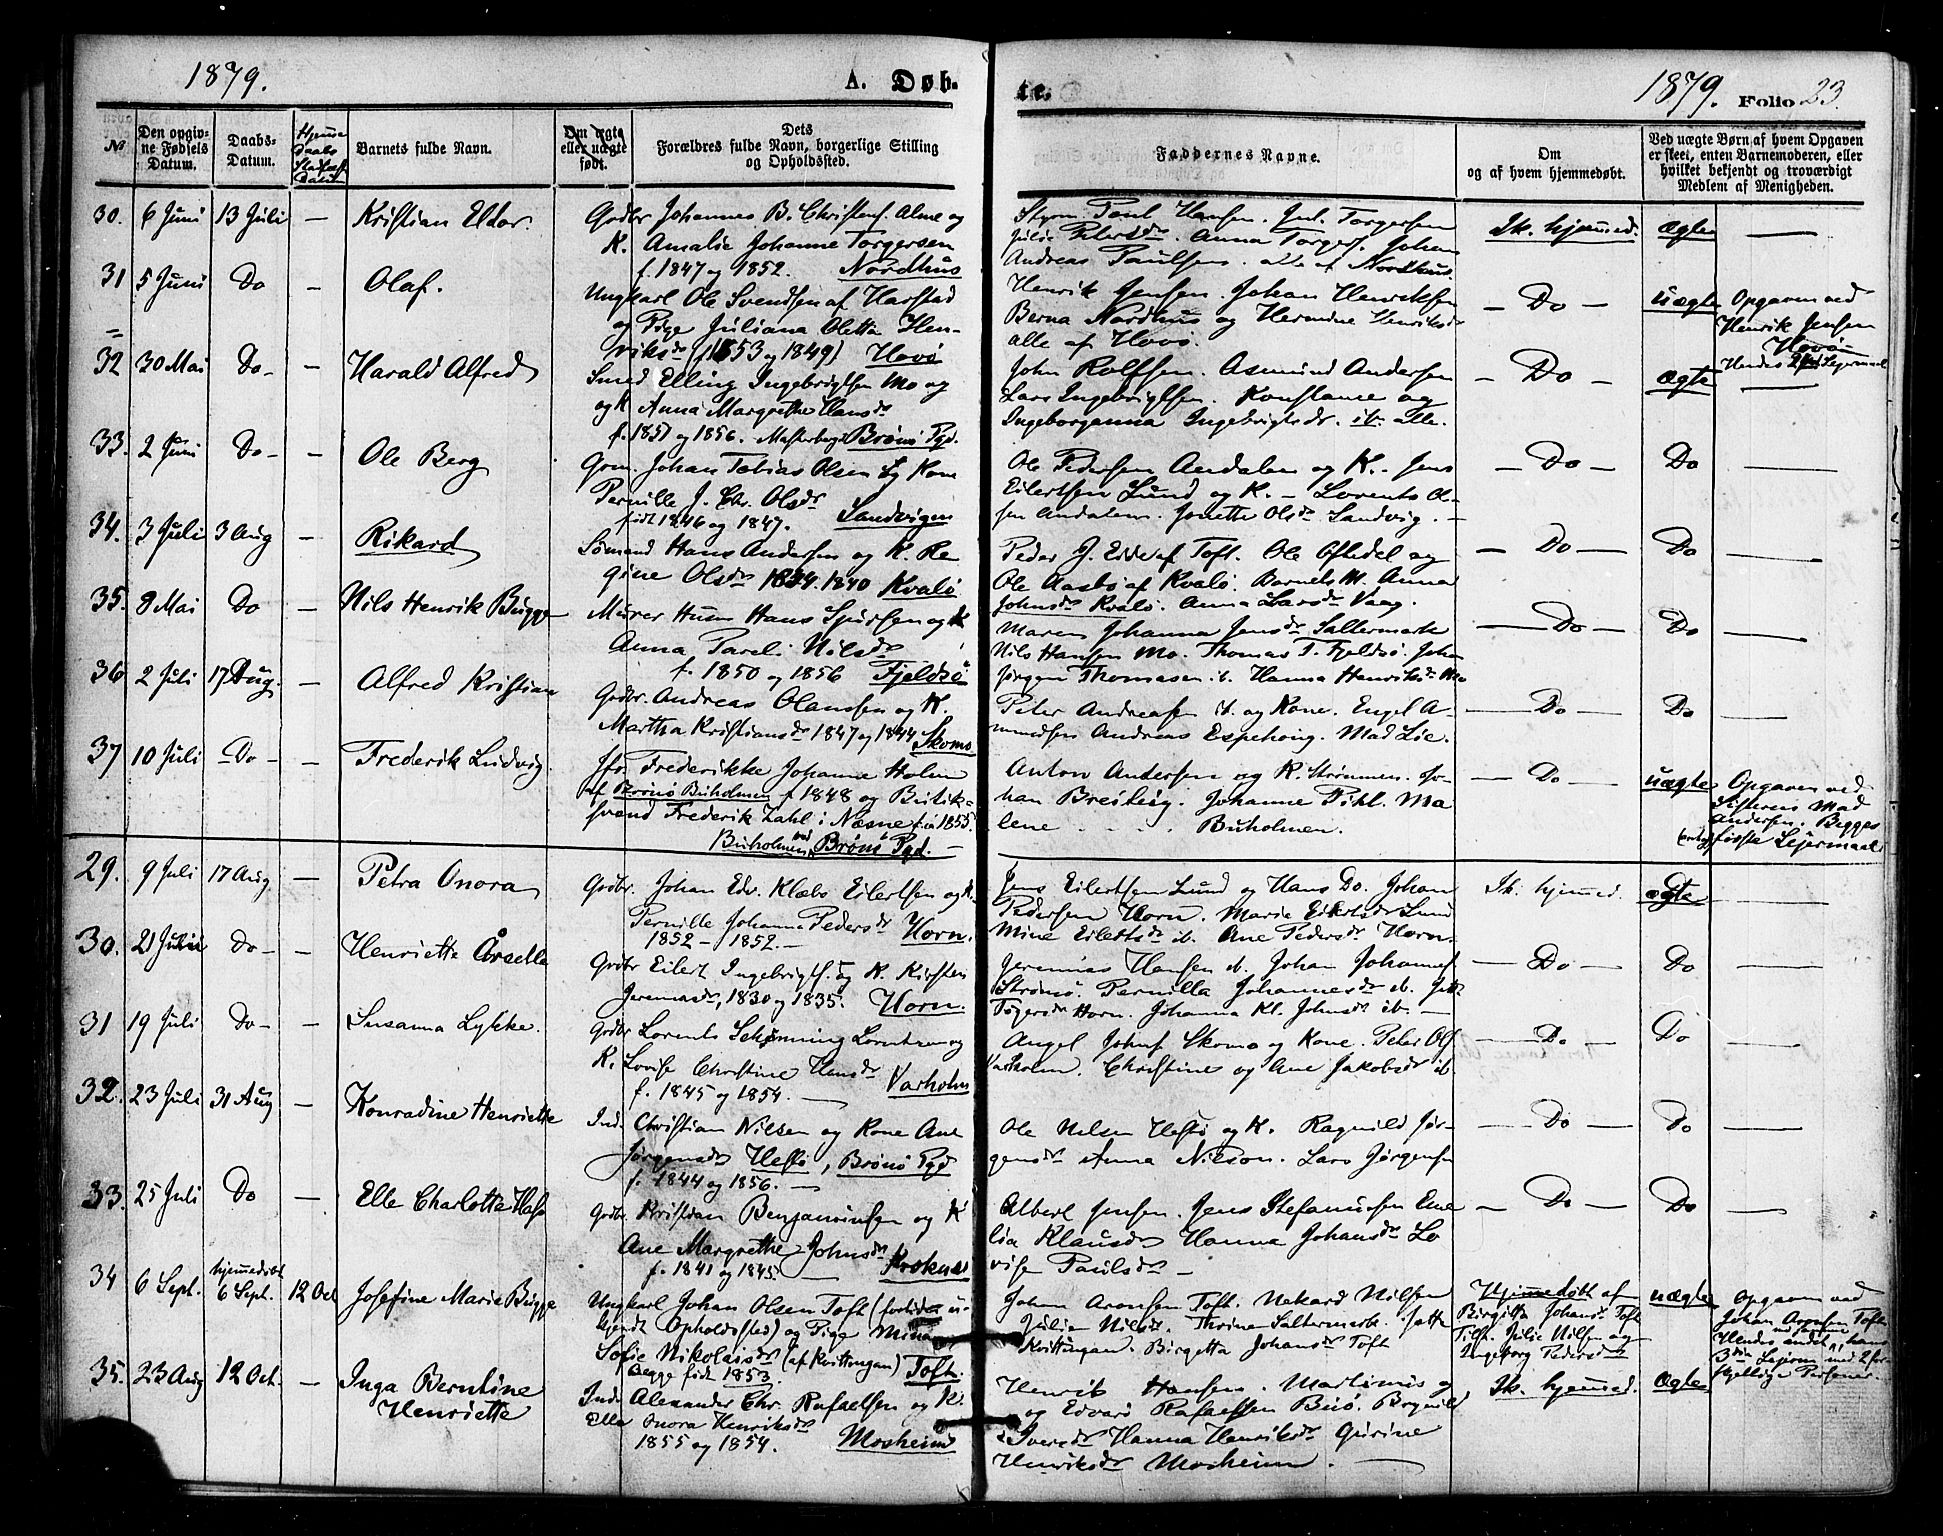 1879.
A. Døb-
te.
1879. Folio 23.
№
Den opgiv-
ne Fødsels
Datum.
Daabs-
Datum.
Hjemme
Daabs
Datum
Barnets fulde Navn.
Om ægte
eller uægte
født.
Dets
Forældres fulde Navn, borgerlige Stilling
og Opholdssted.
Faddernes Navne.
Om
og af hvem hjemmedøbt.
Ved uægte Børn af hvem Opgaven
er skeet, enten Barnemoderen, eller
hvilket bekjendt og troværdigt
Medlem af Menigheden.
30. 6 Juni 13 Juli — Kristian Eldor.
Grdbr Johannes B. Christens. Alme og
K. Amalie Johanne Torgersen
f. 1847 og 1852. Nordhus
Styrm Paul Hansen. Torgersen
Julie Petersdr. Anna Torgers. Johan
Andreas Paulsen. alle af Nordhus.
Ik. hjemmed. ægte —
31 5 Juni Do — Olaf.
Ungkarl Ole Svendsen af Harstad
og Pige Juliana Oletta Hen-
riksdr (1853 og 1849) Hovø
Henrik Jensen. Johan Henriksen
Berna Nordhus og Hermine Henriksdr
alle af Hovø.
— Do — uægte Opgaven ved
Henrik Jensen
Hovø
Hendes 2det Leiermaal
32 30 Mai Do — Harald Alfred
Smed Elling Ingebrigtsen Mo og
og K Anna Margrethe Hansdr
f. 1851 og 1856. Brønø Pgd.
John Rolfsen. Asmund Andersen
Lars Ingebrigtsen. Konstance og
Ingeborganna Ingebrigtsdr. ib. alle.
— Do — ægte —
33. 2 Juni Do — Ole Berg
Grm. Johan Tobias Olsen og Kone
Pernille J. Chr. Olsdr
født 1846 og 1847. Sandvigen
Ole Pedersen Andalen og K. Jens
Eilertsen Lund og K. — Lorents Ol-
sen Andalen. Jonette Olsdr Sandvig. —
— Do — Do —
34. 3 Juli 3 Aug — Rikard
Sømand Hans Andersen og K. Re-
gine Olsdr 1834. 1840 Kvalø
Peder J. Edde af Toft. Ole Oftedel og
Ole Aasbø af Kvalø. Barnets M. Anna
Johnsdr Kvalø. Anna Larsdr Vaag.
— Do — Do —
35. 8 Mai Do — Nils Henrik Bugge
Murer Husm Hans Sjursen og K
Anna Pareli Nilsdr
f. 1850 og 1856 Fjeldsø
Maren Johanna Jensdr Saltermark
Nils Hansen Mo. Thomas T. Fjeldsø. Johan
Jørgen Thomasen ib. Hanna Henriksdr Mo
— Do — Do —
36 2 Juli 17 Aug. — Alfred Kristian
Grdbr. Andreas Olaussen og K.
Martha Kristiansdr 1847 og 1844 Skomo
Peter Andreassen ib. og Kone. Engel A-
mundsen Andreas Espehoug. Mad Lie.
— Do — Do —
37 10 Juli Do — Frederik Ludvig.
Jfr. Frederikke Johanne Holm
af Brønø Buholmen f. 1848 og Butik-
svend Frederik Zahl i Næsne f. 1855.
Buholmen ved Brønø Pgd. —
Anton Andersen og K. Strømmen. Jo-
han Breivig. Johanne Pihl. Ma
lene . . . . Buholmen.
— Do — uægte Opgaven ved
Søsteren Mad
Andersen. Begges
første Leiermaal
29. 9 Juli 17 Aug — Petra Onora
Grdbr. Johan Edv. Klæbo Eilertsen og K.
Pernille Johanna Pedersdr Horn.
1852 — 1852. —
Jens Eilertsen Lund og Hans Do. Johan
Pedersen Horn. Marie Eilertsdr Lund
Mine Eilertsdr ib. Ane Pedersdr Horn.
Ik. hjemmed. ægte —
30. 21 Juli Do — — Henriette Årselle
Grdbr Eilert Ingebrigts. og K. Kirsten
Jeremiasdr, 1830 og 1835. Horn.
Jeremias Hansen ib. Johan Johannes
Strømø. Pernilla Johannesdr ib.
Horn. Johanna Kl. Johnsdr ib. —
— Do — Do —
31 19 Juli Do — — Susanna Lykke.
Grdbr Lorents Schønning Lorntsen og
K. Lovise Christine Hansdr
f. 1845 og 1854. — Varholm
Angel Johns. Skomo og Kone. Peter Ols
Varholm. Christine og Ane Jakobsdr ib.
— Do — Do —
32. 23 Juli 31 Aug — Konradine Henriette
Ind. Christian Nilsen og Kone Ane
Jørgensdr Hestø, Brønø Pgd
f. 1844 og 1856. —
Ole Nilsen Hestø og K. Ragnild Jør-
gensdr Anna Nilson. Lars Jørgensen
— Do — Do —
33. 25 Juli Do — Elle Charlotte Hafs
Grdbr. Kristian Benjaminsen og K
Ane Margrethe Johnsdr
f. 1841 og 1845. — Kroknes
Albert Jensen. Jens Stefanussen Eme
lia Klausdr Hanna Johansdr Lo
vise Paulsdr —
— Do — Do —
34 6 Sept. hjemmedøbt
6 Sept. 12 Oct Josefine Marie Bugge
Ungkarl Johan Olsen Toft (fortiden u-
kjendt Opholdssted) og Pige Mina
Sofie Nikolaisdr (af Kvittingan) Toft.
Begge født 1853.
Johan Aronsen Toft. Nekard Nilsen
Julia Nilsdr. Thrine Saltermark. Jette
Kvittingan. Birgetta Johansdr Toft
Hjemmedøbt af
Birgitta Johansdr Toft
Tilst. Julie Nilsen og
Ingeborg Pedersdr
uægte Opgaven ved
Johan Aronsen Toft
Hendes andet, hans
3die Leierm. med 2 for-
skjellige Personer.
35. 23 Aug 12 Oct. — Inga Berntine
Henriette
Ind. Alexander Chr. Rafaelsen og K.
Ella Onora Henriksdr
1855 og 1854. Mosheim
Henrik Hansen. Martinus og
og Edvard Rafaelsen Buø. Bergnild
Iversdr Hanna Henriksdr Gurine
Henriksdr Mosheim. —
Ik. hjemmed. ægte